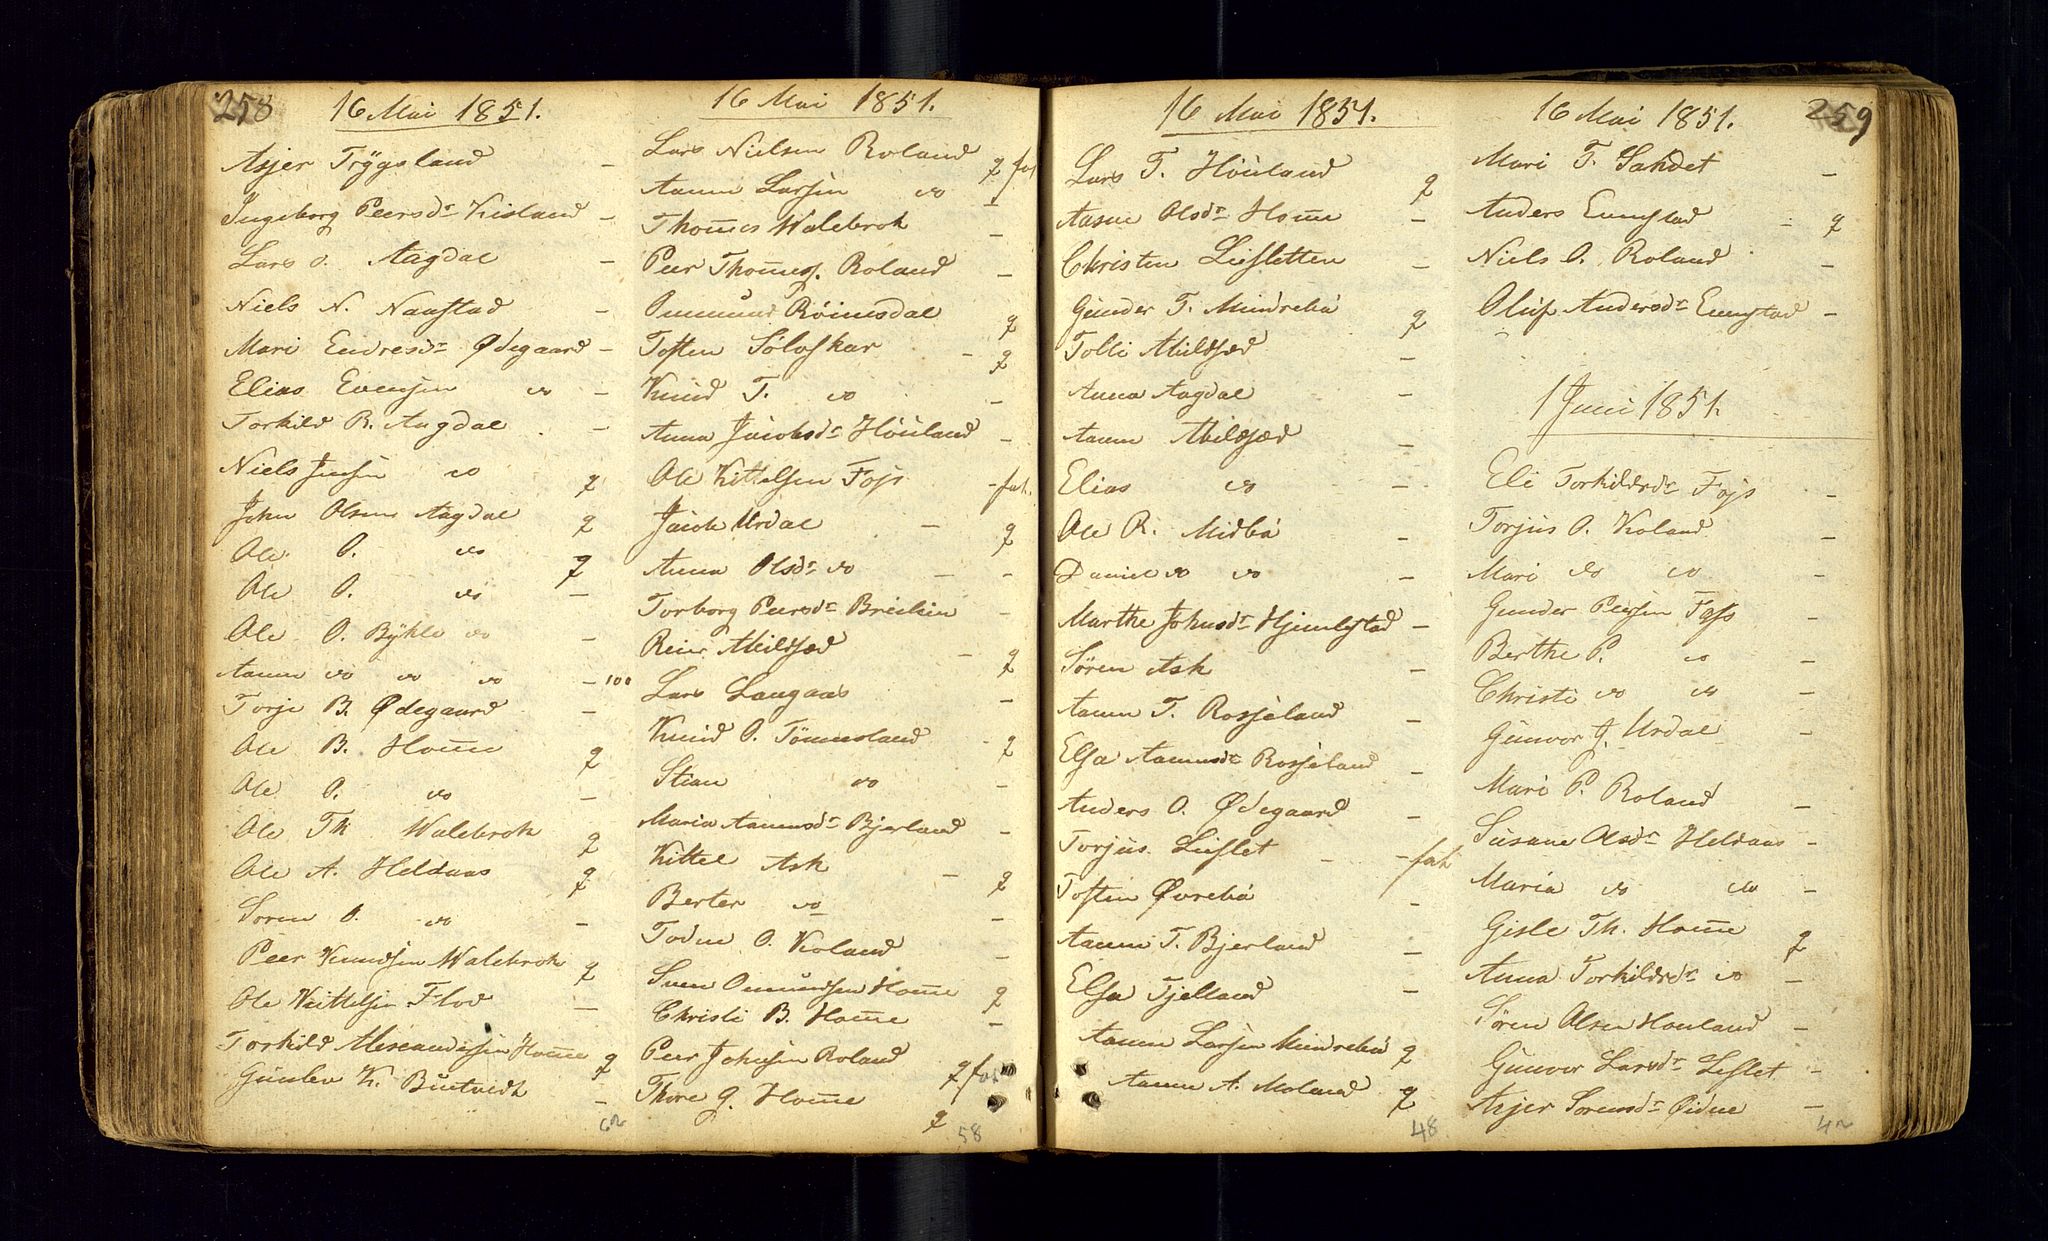 258
16 Mai 1851.
Asjer Trygsland -
Ingeborg Peersdr Kisland -
Lars O. Aagdal -
Niels N. Naustad -
Mari Endresdr Ødegaard -
Elias Evensen do -
Torkild R. Aagdal -
Niels Jensen do q
John Olsen Aagdal q
Ole O. do q
Ole O. do -
Ole O. Bykle do -
Aanen do do do - 100
Torje B. Ødegaard -
Ole B. Home q
Ole O. do -
Ole Th. Walebrok q
Ole A. Heldaas q
Soren O. do -
Peer Knudsen Walebrok q
Ole Kittelsen Flod -
Torkild Alexandersen Home q
Gunlev K. Buntvedt -
62
16 Mai 1851.
Lars Nielsen Roland q fat
Aanen Larsen do -
Thomes Walebrok -
Peer Thomes. Roland -
Ommund Röinsdal q
Tosten Soloskar - q
Knud T. do -
Anna Jacobsdr Höuland -
Ole Kittelsen Fojs - fat.
Jacob Urdal - q
Anna Olsdr do - -
Torborg Peersdr Breilien -
Reier Abildsæd - q
Lars Langaas -
Knud O. Tönnesland - q
Stian do -
Maria Aanensdr Bjerland -
Kittel Ask - q
Berter do -
Todne O. Koland -
Sven Ommundsen Home q
Christi B. Home -
Peer Johnsen Roland q fat
Thore G. Home q
58
16 Mai 1851.
Lars T. Höuland q
Aasne Olsdr Home -
Christen Lusletten -
Gunder T. Mindrebö q
Tolli Abildsæd -
Anna Aagdal -
Aanen Abildsæd -
Elias do -
Ole R. Midbö -
Daniel do do -
Marthe Johnsdr Hjemlystad -
Sören Ask -
Aanen T. Rossjeland -
Elsa Aanensdr Rossjeland -
Anders O. Ødegaard -
Torjus Leislet - - fat
Tosten Øvrebö -
Aanen T. Bjerland -
Elsa Tjelland -
Aanen Larsen Mindrebö q
Aanen A. Moland q
48
16 Mai 1851.
259
Mari T. Sandet -
Anders Eunstad - q
Niels O. Roland -
Oluf Andersdr Eunstad -
1 Juni 1851.
Eli Torkildsdr Fojs -
Torjus O. Koland -
Mari do do -
Gunder Peersen Fojs -
Berthe P. do -
Christi do do -
Gunvor J. Urdal -
Mari P. Roland -
Susane Olsdr Heldaas -
Maria do do -
Gisle Th. Home q
Anna Torkildsdr do -
Sören Olsen Houland -
Gunvor Larsdr Leslet -
Asjer Sorensdr Øidne -
42